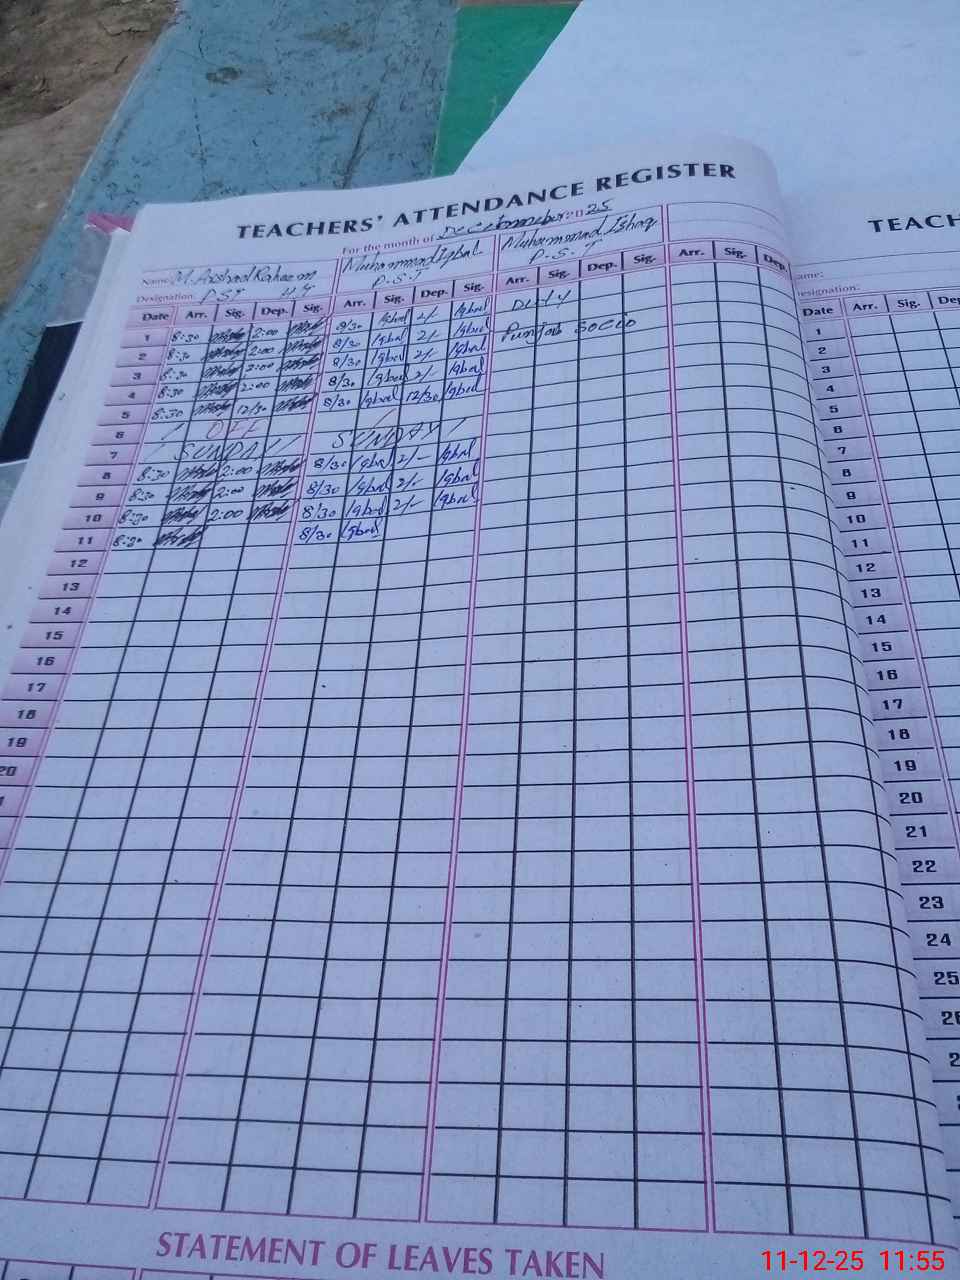 TEACHERS' ATTENDANCE REGISTER
For the month of December 2025
Name: M. Arshad Raheem Muhammad Iqbal Muhammad Ishaq
Designation: P.S.T H.T P.S.T P.S.T
Date Arr. Sig. Dep. Sig. Arr. Sig. Dep. Sig. Arr. Sig. Dep. Sig. Arr. Sig. Dep.
1 8:30 2:00 8/30 Iqbal 2/- Iqbal Duty
2 8:30 2:00 8/30 Iqbal 2/- Iqbal Punjab Socio
3 8:30 2:00 8/30 Iqbal 2/- Iqbal
4 8:30 2:00 8/30 Iqbal 2/- Iqbal
5 8:30 12/30 8/30 Iqbal 12/30 Iqbal
6 OFF
7 SUNDAY SUNDAY
8 8:30 2:00 8/30 Iqbal 2/- Iqbal
9 8:30 2:00 8/30 Iqbal 2/- Iqbal
10 8:30 2:00 8/30 Iqbal 2/- Iqbal
11 8:30 8/30 Iqbal
12
13
14
15
16
17
18
19
20
STATEMENT OF LEAVES TAKEN
TEACH
Date Arr. Sig.
1
2
3
4
5
6
7
8
9
10
11
12
13
14
15
16
17
18
19
20
21
22
23
24
25
11-12-25 11:55